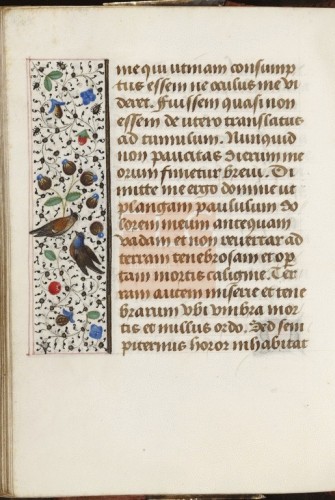 me qui utinam consump
tus essem ne oculus me vi
deret. Fuissem quasi non
essem de utero translatus
ad tumulum. Nunquid
non paucitas dierum me
orum finietur brevi. Di
mitte me ergo domine ut
plangam paululum do
lorem meum antequam
vadam et non revertar ad
terram tenebrosam et oper
tam mortis caligine. Ter
ram autem miserie et tene
brarum ubi umbra mor
tis et nullus ordo. Sed sem
piternus horor inhabitat